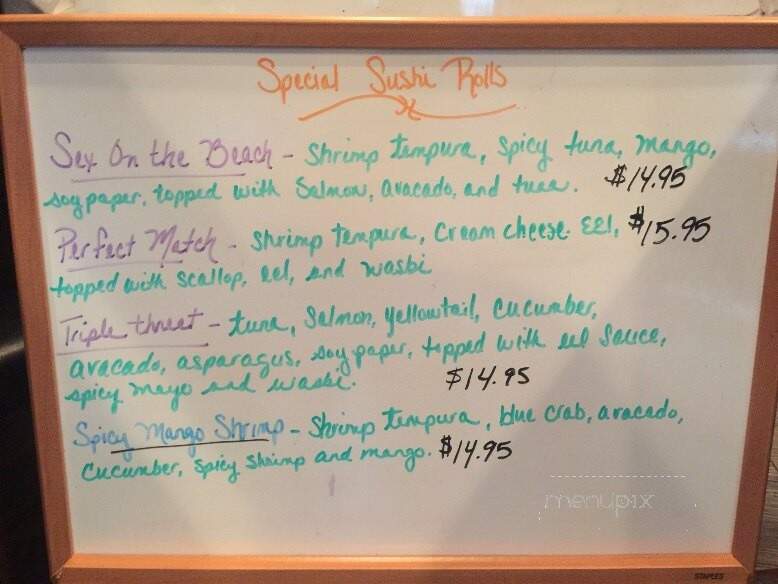 Special Sushi Rolls
Sex On the Beach - Shrimp tempura, Spicy tuna, mango,
soy paper, topped with Salmon, avacado, and tuna. $14.95
Perfect Match - Shrimp tempura, Cream cheese. Eel, $15.95
topped with scallop, eel, and wasbi
Triple threat - tuna, Salmon, yellowtail, cucumber,
avacado, asparagus, soy paper, topped with eel Sauce,
spicy mayo and wasbi. $14.95
Spicy Mango Shrimp - Shrimp tempura, blue crab, avacado,
Cucumber, Spicy Shrimp and mango. $14.95
menupix
STAPLES